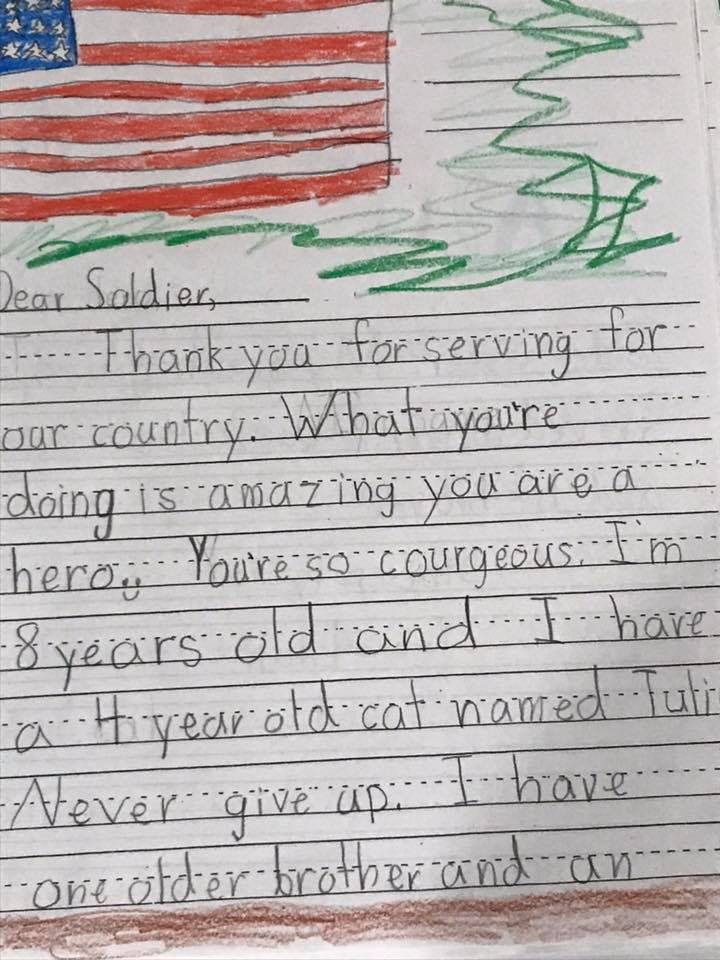 Dear Soldier,
Thank you for serving for
our country. What you're
doing is amazing you are a
hero.. You're so courgeous. I'm
8 years old and I have
a 4 year old cat named Tuli
Never give up. I have
one older brother and an